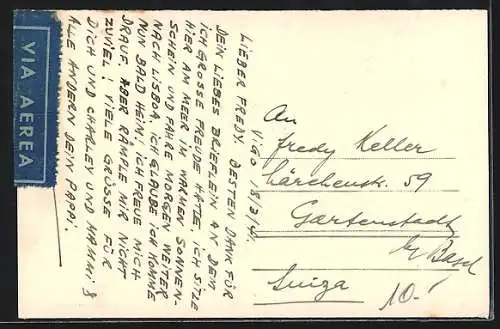 VIA AEREA
VIGO 18/3/4.
LIEBER FREDY. BESTEN DANK FÜR
DEIN LIEBES BRIEFLEIN AN DEM
ICH GROSSE FREUDE HATTE. ICH SITZE
HIER AM MEER IM WARMEN SONNEN-
SCHEIN UND FAHRE MORGEN WEITER
NACH LISBOA, ICH GLAUBE ICH KOMME
NUN BALD HEIM. ICH FREUE MICH
DRAUF. ABER RÄMPLE MIR NICHT
ZUVIEL! VIELE GRÜSSE FÜR
DICH UND CHARLEY UND MAMMI &
ALLE ANDERN DEIN PAPPI.
An
Fredy Keller
Lärchenstr. 59
Gartenstadt
bei Basel
Suiza
10.-